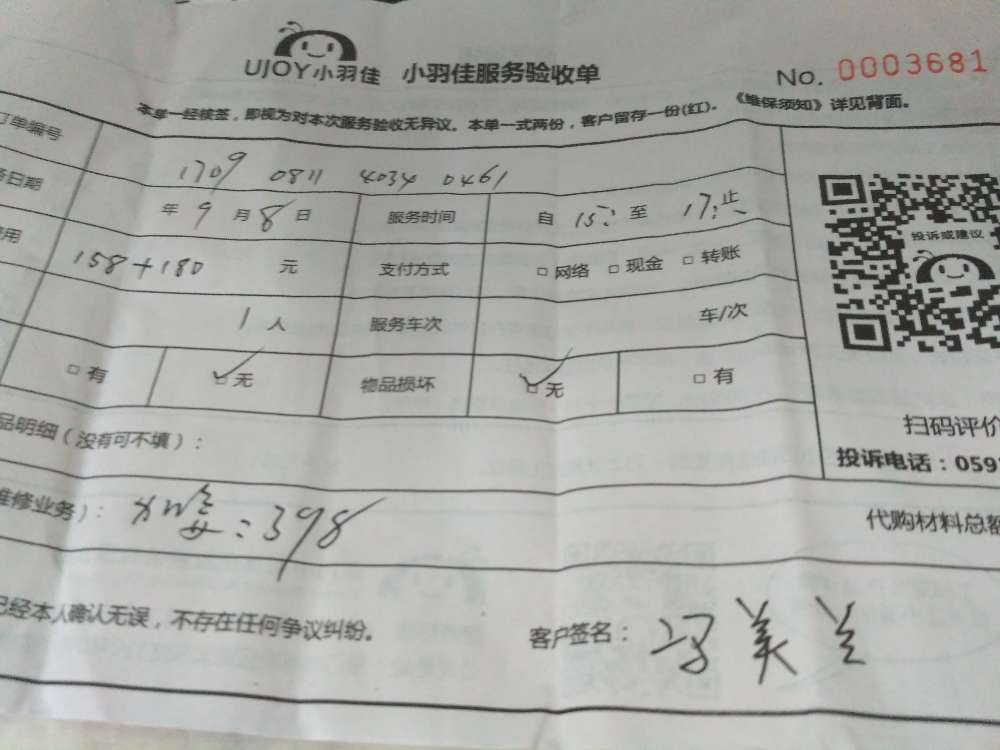 UJOY小羽佳 小羽佳服务验收单 No. 0003681
本单一经核签，即视为对本次服务验收无异议。本单一式两份，客户留存一份(红)。《维保须知》详见背面。
订单编号 1709 0811 4034 0461
务日期 年 9 月 8 日 服务时间 自 15: 至 17: 止
费用 158+180 元 支付方式 □ 网络 □ 现金 □ 转账
1 人 服务车次 车/次
□ 有 □ 无 物品损坏 □ 无 □ 有
投诉或建议
扫码评价
投诉电话：059
品明细（没有可不填）：
维修业务）： : 398 代购材料总额
已经本人确认无误，不存在任何争议纠纷。
客户签名： 冯美兰